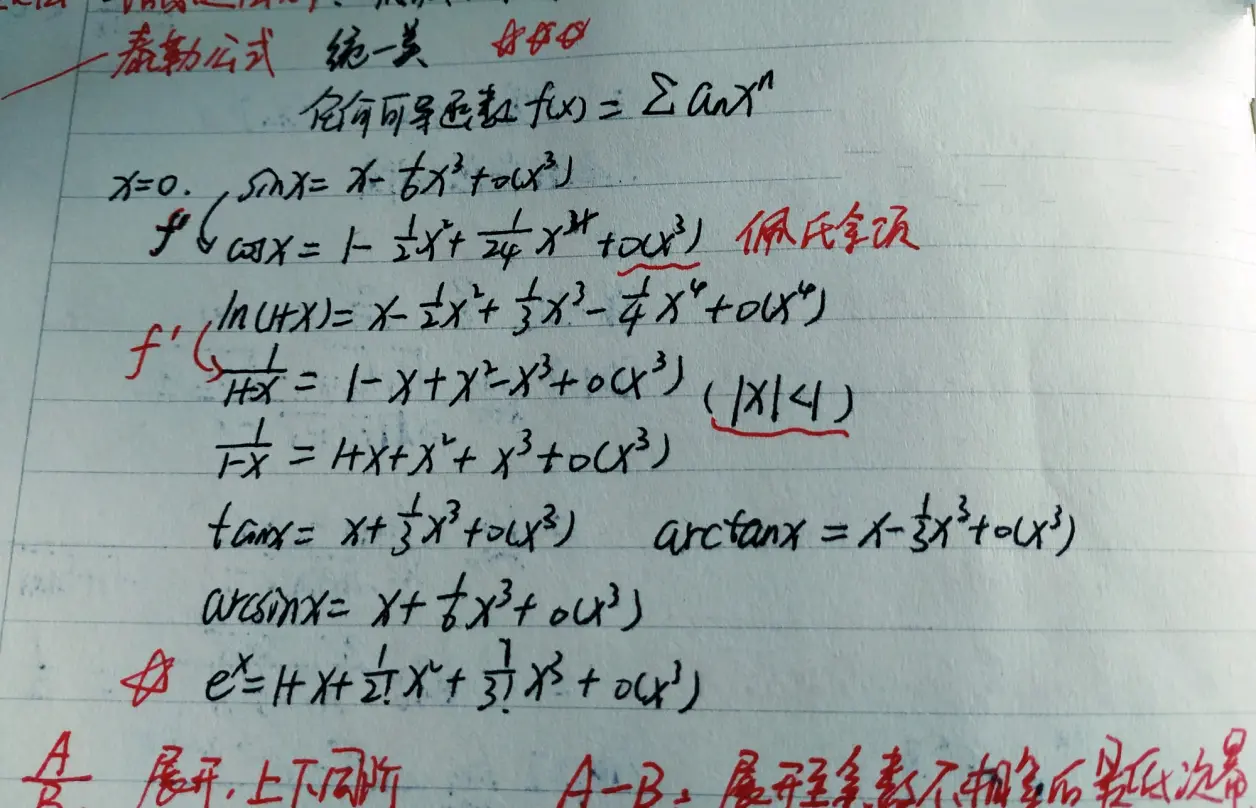 泰勒公式 统一美 ☆☆☆
任何可导函数 f(x) = Σ aₙxⁿ
x=0. sinx = x - 1/6 x³ + o(x³)
f' cosx = 1 - 1/2 x² + 1/24 x⁴ + o(x³) 佩氏余项
ln(1+x) = x - 1/2 x² + 1/3 x³ - 1/4 x⁴ + o(x⁴)
f' 1/(1+x) = 1 - x + x² - x³ + o(x³) (|x|<1)
1/(1-x) = 1+x+x² + x³ + o(x³)
tanx = x + 1/3 x³ + o(x³) arctanx = x - 1/3 x³ + o(x³)
arcsinx = x + 1/6 x³ + o(x³)
☆ eˣ = 1+x+ 1/2! x² + 1/3! x³ + o(x³)
A/B 展开,上下同阶 A-B, 展开至系数不相等的最低次幂